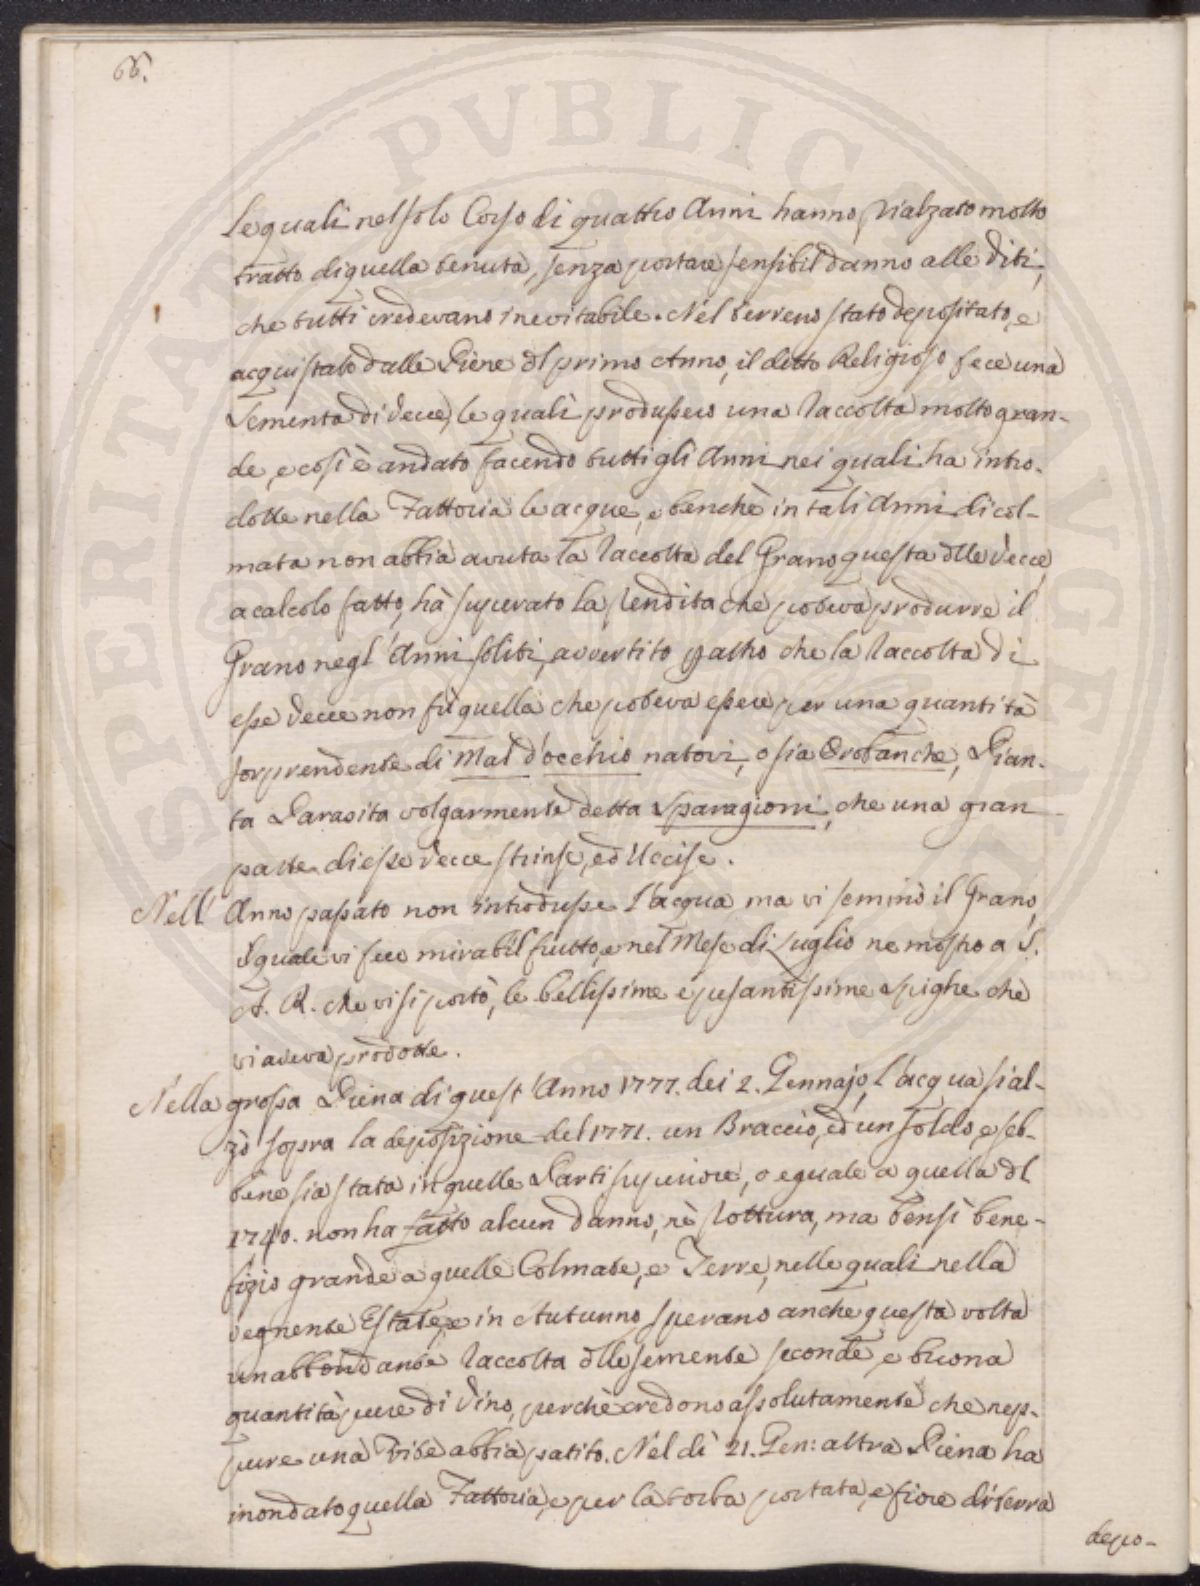 66.
PVBLICAE
Le quali nel solo Corso di quattro Anni hanno rialzato molto
tratto di quella tenuta, senza portare sensibil danno alle Viti,
che tutti credevano inevitabile. Nel terreno stato depositato, e
acquistato dalle Piene dl primo Anno, il ditto Religioso fece una
Sementa di Vecce, le quali produssero una raccolta molto gran-
de, e così è andato facendo tutti gli Anni nei quali ha intro-
dotte nella Fattoria le acque, e benchè in tali Anni di col-
mata non abbia avuta la raccolta del Grano questa dlle Vecce,
a calcolo fatto, hà superato la rendita che poteva produrre il
Grano negl'Anni soliti, avvertito paltro che la raccolta di
esse Vecce non fù quella che poteva essere per una quantità
sorprendente di Mal d'occhio natovi, o sia Orobanche, Pian-
ta Parasita volgarmente detta Sparagioni, che una gran
parte di esse Vecce strinse, ed Uccise.
Nell' Anno passato non introdusse l'acqua ma vi seminò il Grano,
Il quale vi fece mirabil frutto, e nel Mese di Luglio ne mostrò a S.
A. R. che vi si portò, le bellissime e pesantissime spighe che
vi aveva prodotte.
Nella grossa Piena di quest'Anno 1777. dei 2. Gennajo, l'acqua si al-
zò sopra la deposizione del 1771. un Braccio, ed un soldo, e seb-
bene sia stata in quelle Parti superiore, o eguale a quella dl
1740. non ha fatto alcun danno, nè rottura, ma bensì bene-
fizio grande a quelle Colmate, e Terre, nelle quali nella
vegnente Estate, e in Autunno sperano anche questa volta
un abbondante raccolta dlle semente seconde, e buona
quantità pure di Vino, perchè credono assolutamente che nep-
pure una Vite abbia patito. Nel dì 21. Gen: altra Piena ha
inondato quella Fattoria, e per la torba portata, e fiore di terra
depo-